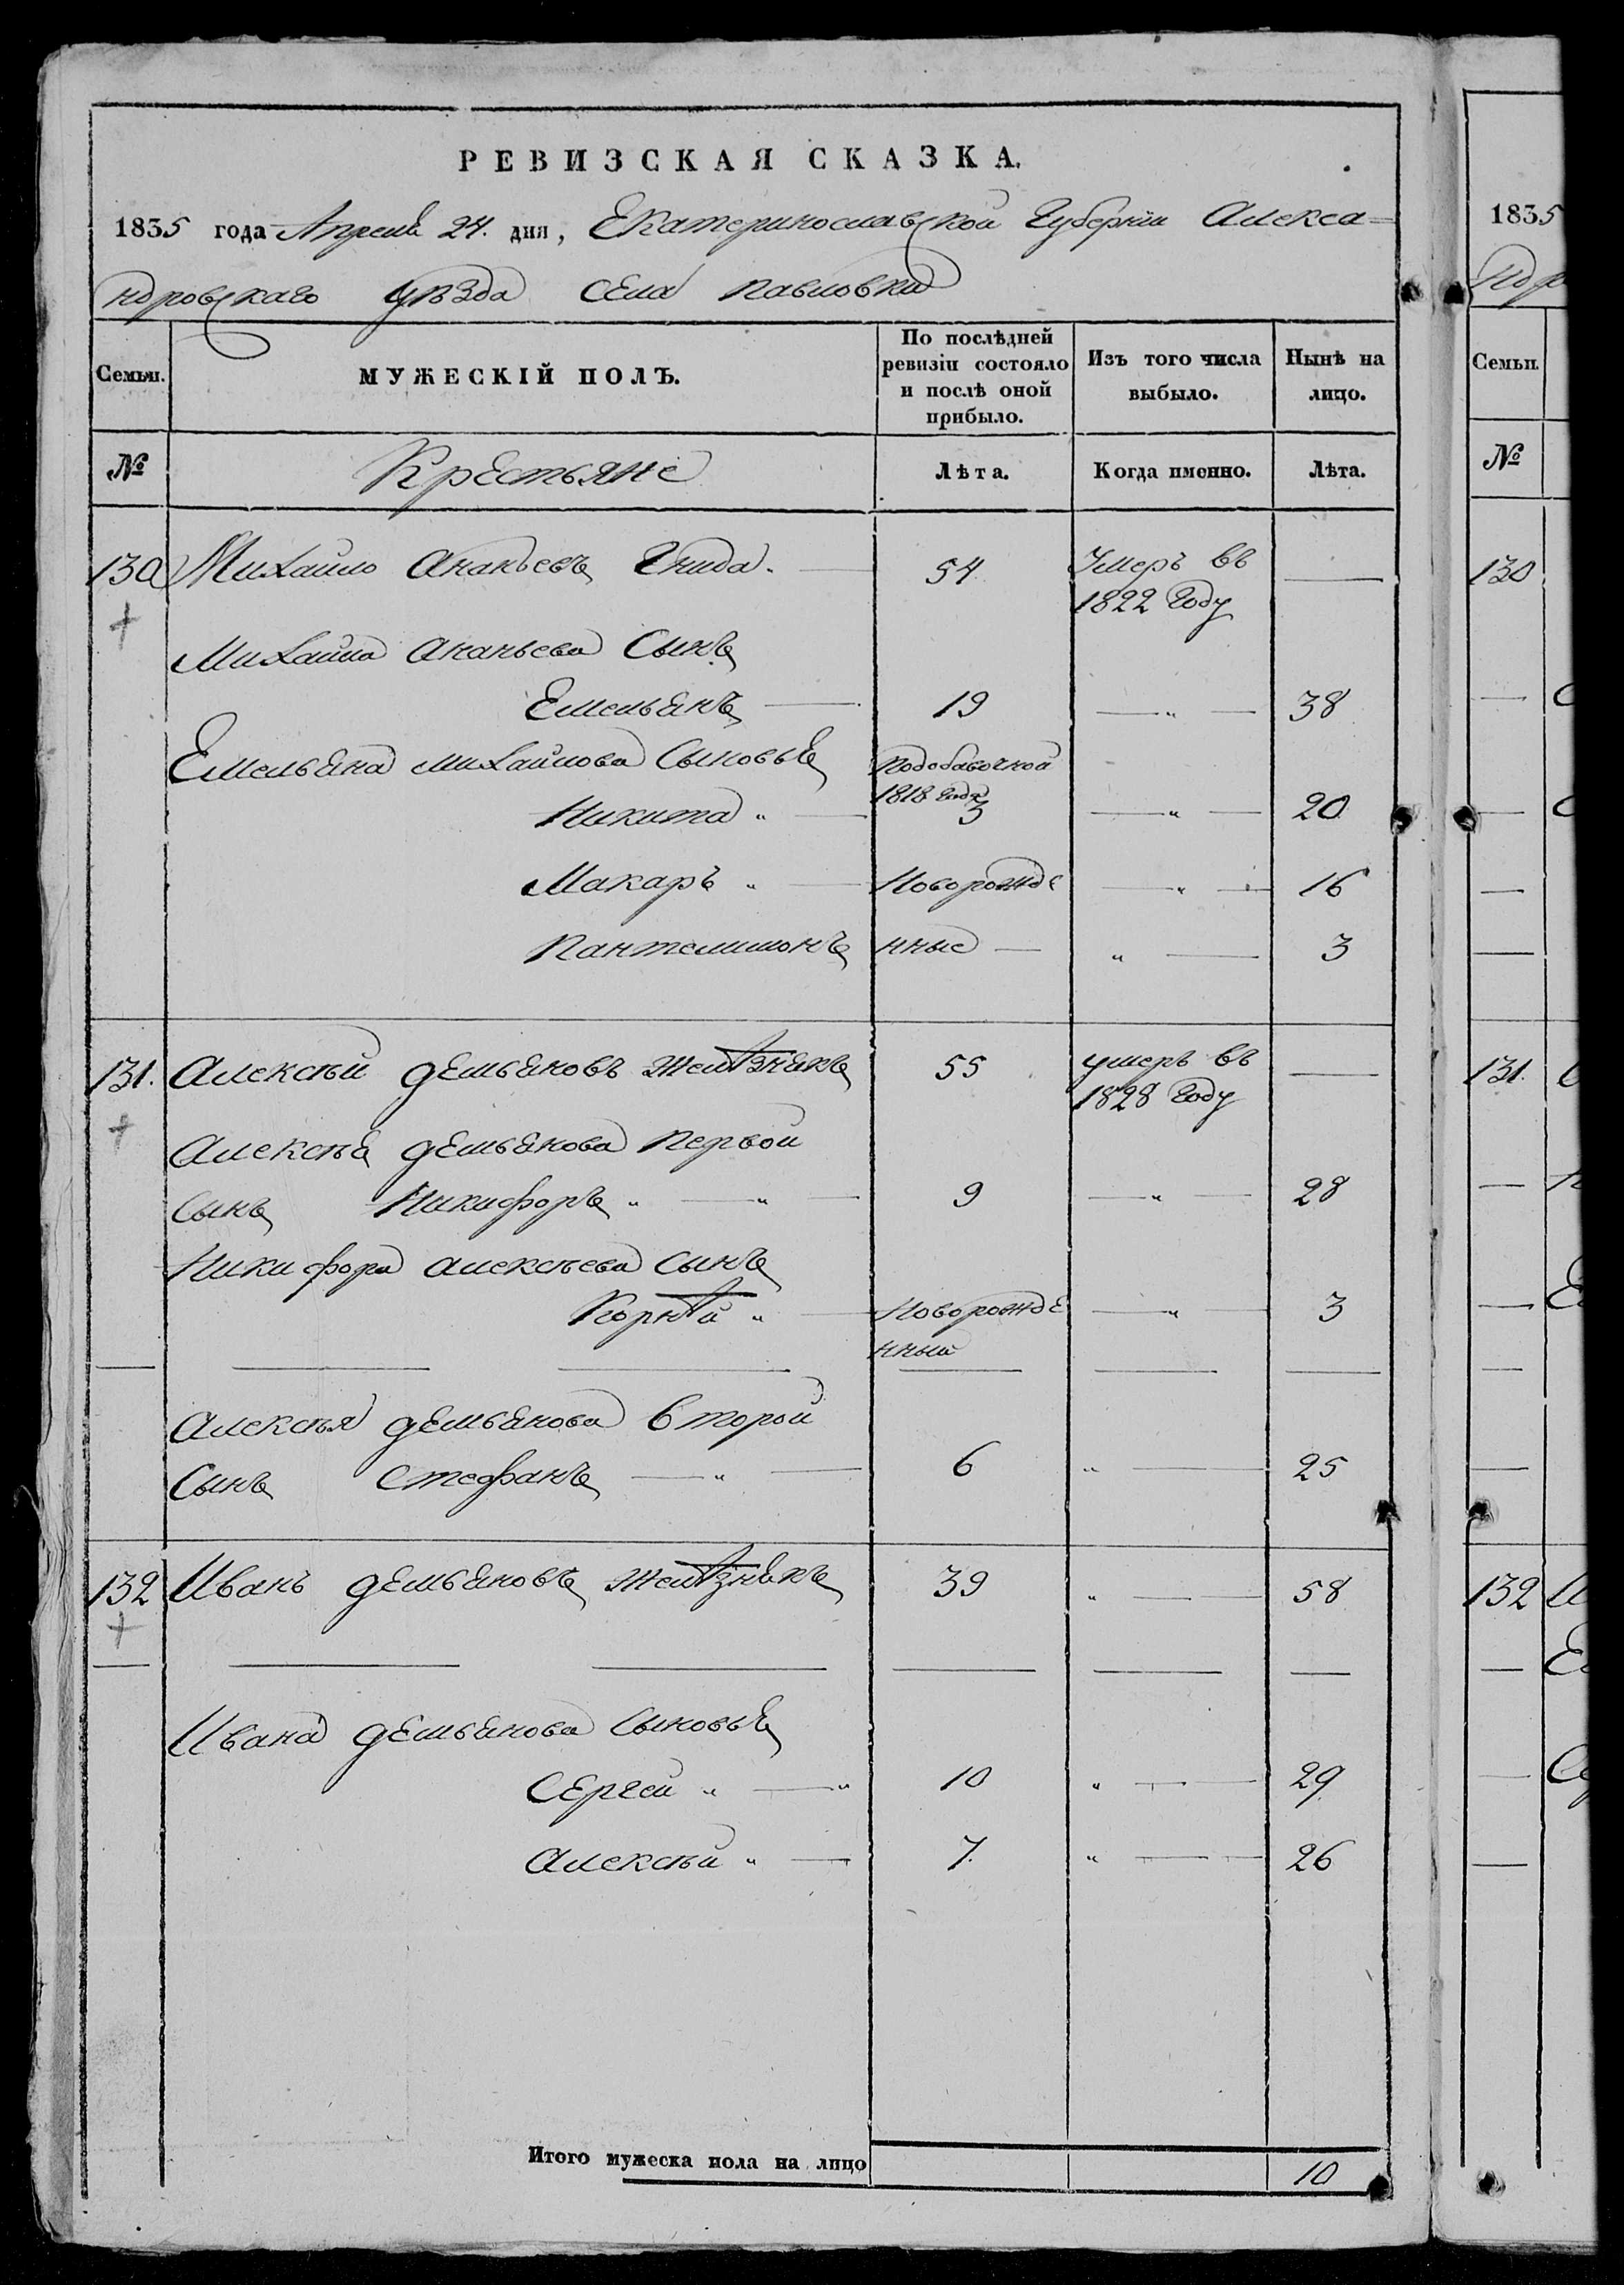 РЕВИЗСКАЯ СКАЗКА.
1835 года Апреля 24. дня, Екатеринославской Губерніи Алекса=
ндровскаго уѣзда села Павловки
Семьи. МУЖЕСКІЙ ПОЛЪ. По послѣдней ревизіи состояло и послѣ оной прибыло. Изъ того числа выбыло. Нынѣ на лицо.
№ Крестьяне Лѣта. Когда именно. Лѣта.
130 Михайло Ананьевъ Гнида. — 54 Умеръ въ —
1822 Году
Михайла Ананьева Сынъ
Емельянъ — 19 — „ — 38
Емельяна Михайлова Сыновья Подобавочной
1818 года
Никита „ — 3 — „ — 20
Макаръ „ — Новорожде — „ — 16
Пантелимонъ нные — „ — 3
131. Алексѣй Демьяновъ Желѣзнякъ 55 умеръ въ —
1828 Году
Алексѣя Демьянова Первой
Сынъ Никифоръ „ — „ — 9 — „ — 28
Никифора Алексѣева Сынъ
Корнѣй „ — Новорожде — „ — 3
нный
Алексѣя Демьянова Второй
Сынъ Стефанъ — „ — 6 „ — 25
132 Иванъ Демьяновъ Желѣзнякъ 39 „ — — 58
Ивана Демьянова Сыновья
Сергей „ — „ 10 „ — — 29
Алексѣй „ — 7. „ — — 26
Итого мужеска пола на лицо 10
1835
ндро
Семьи.
№
130
131.
132